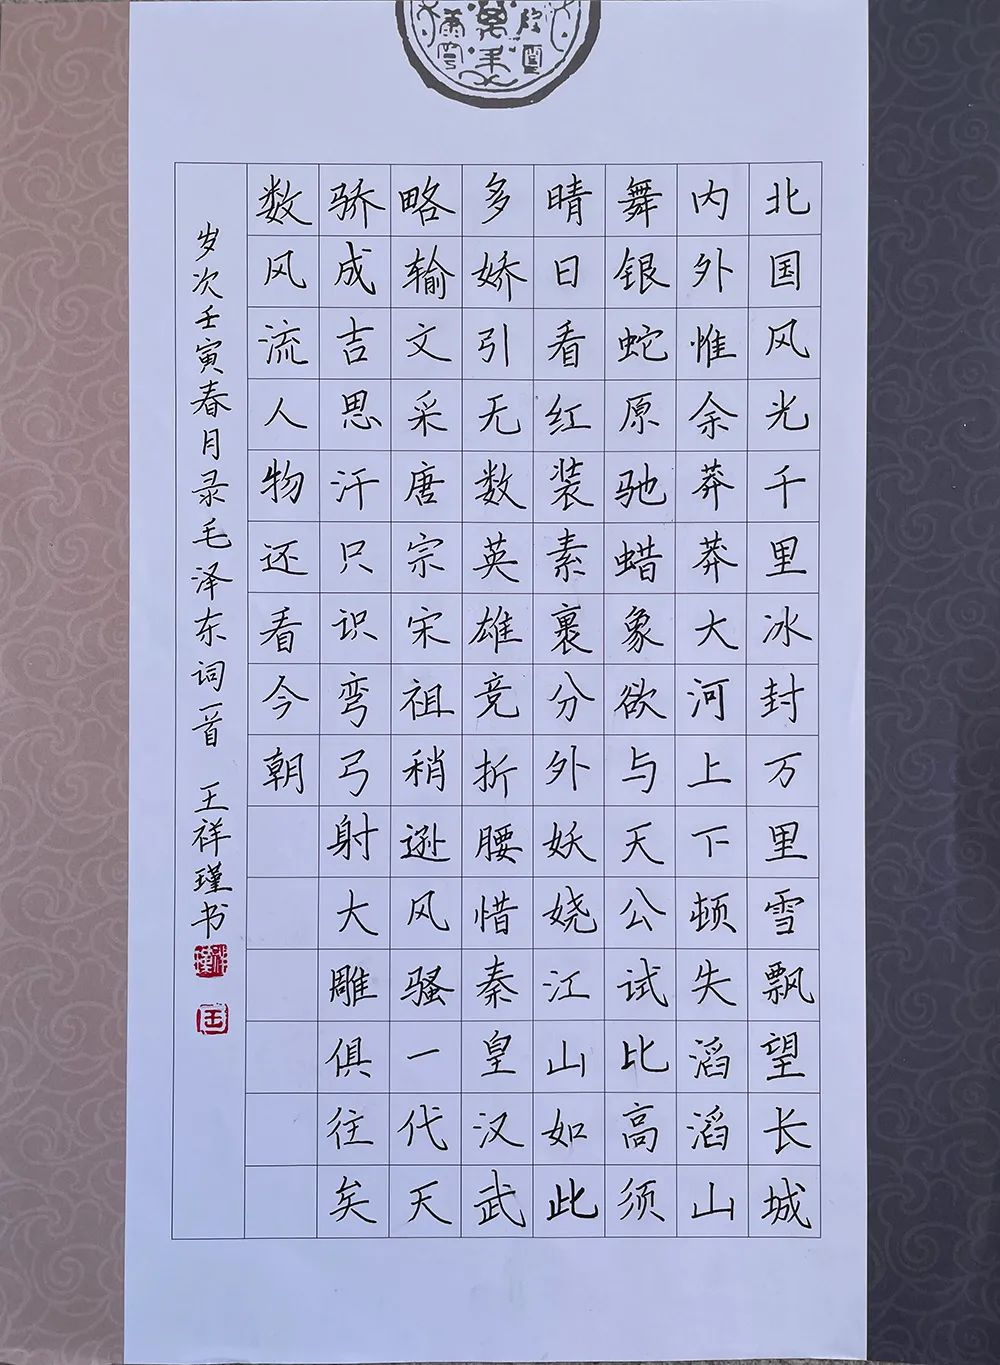 北国风光千里冰封万里雪飘望长城
内外惟余莽莽大河上下顿失滔滔山
舞银蛇原驰蜡象欲与天公试比高须
晴日看红装素裹分外妖娆江山如此
多娇引无数英雄竞折腰惜秦皇汉武
略输文采唐宗宋祖稍逊风骚一代天
骄成吉思汗只识弯弓射大雕俱往矣
数风流人物还看今朝
岁次壬寅春月录毛泽东词一首 王祥瑾书
祥瑾
王